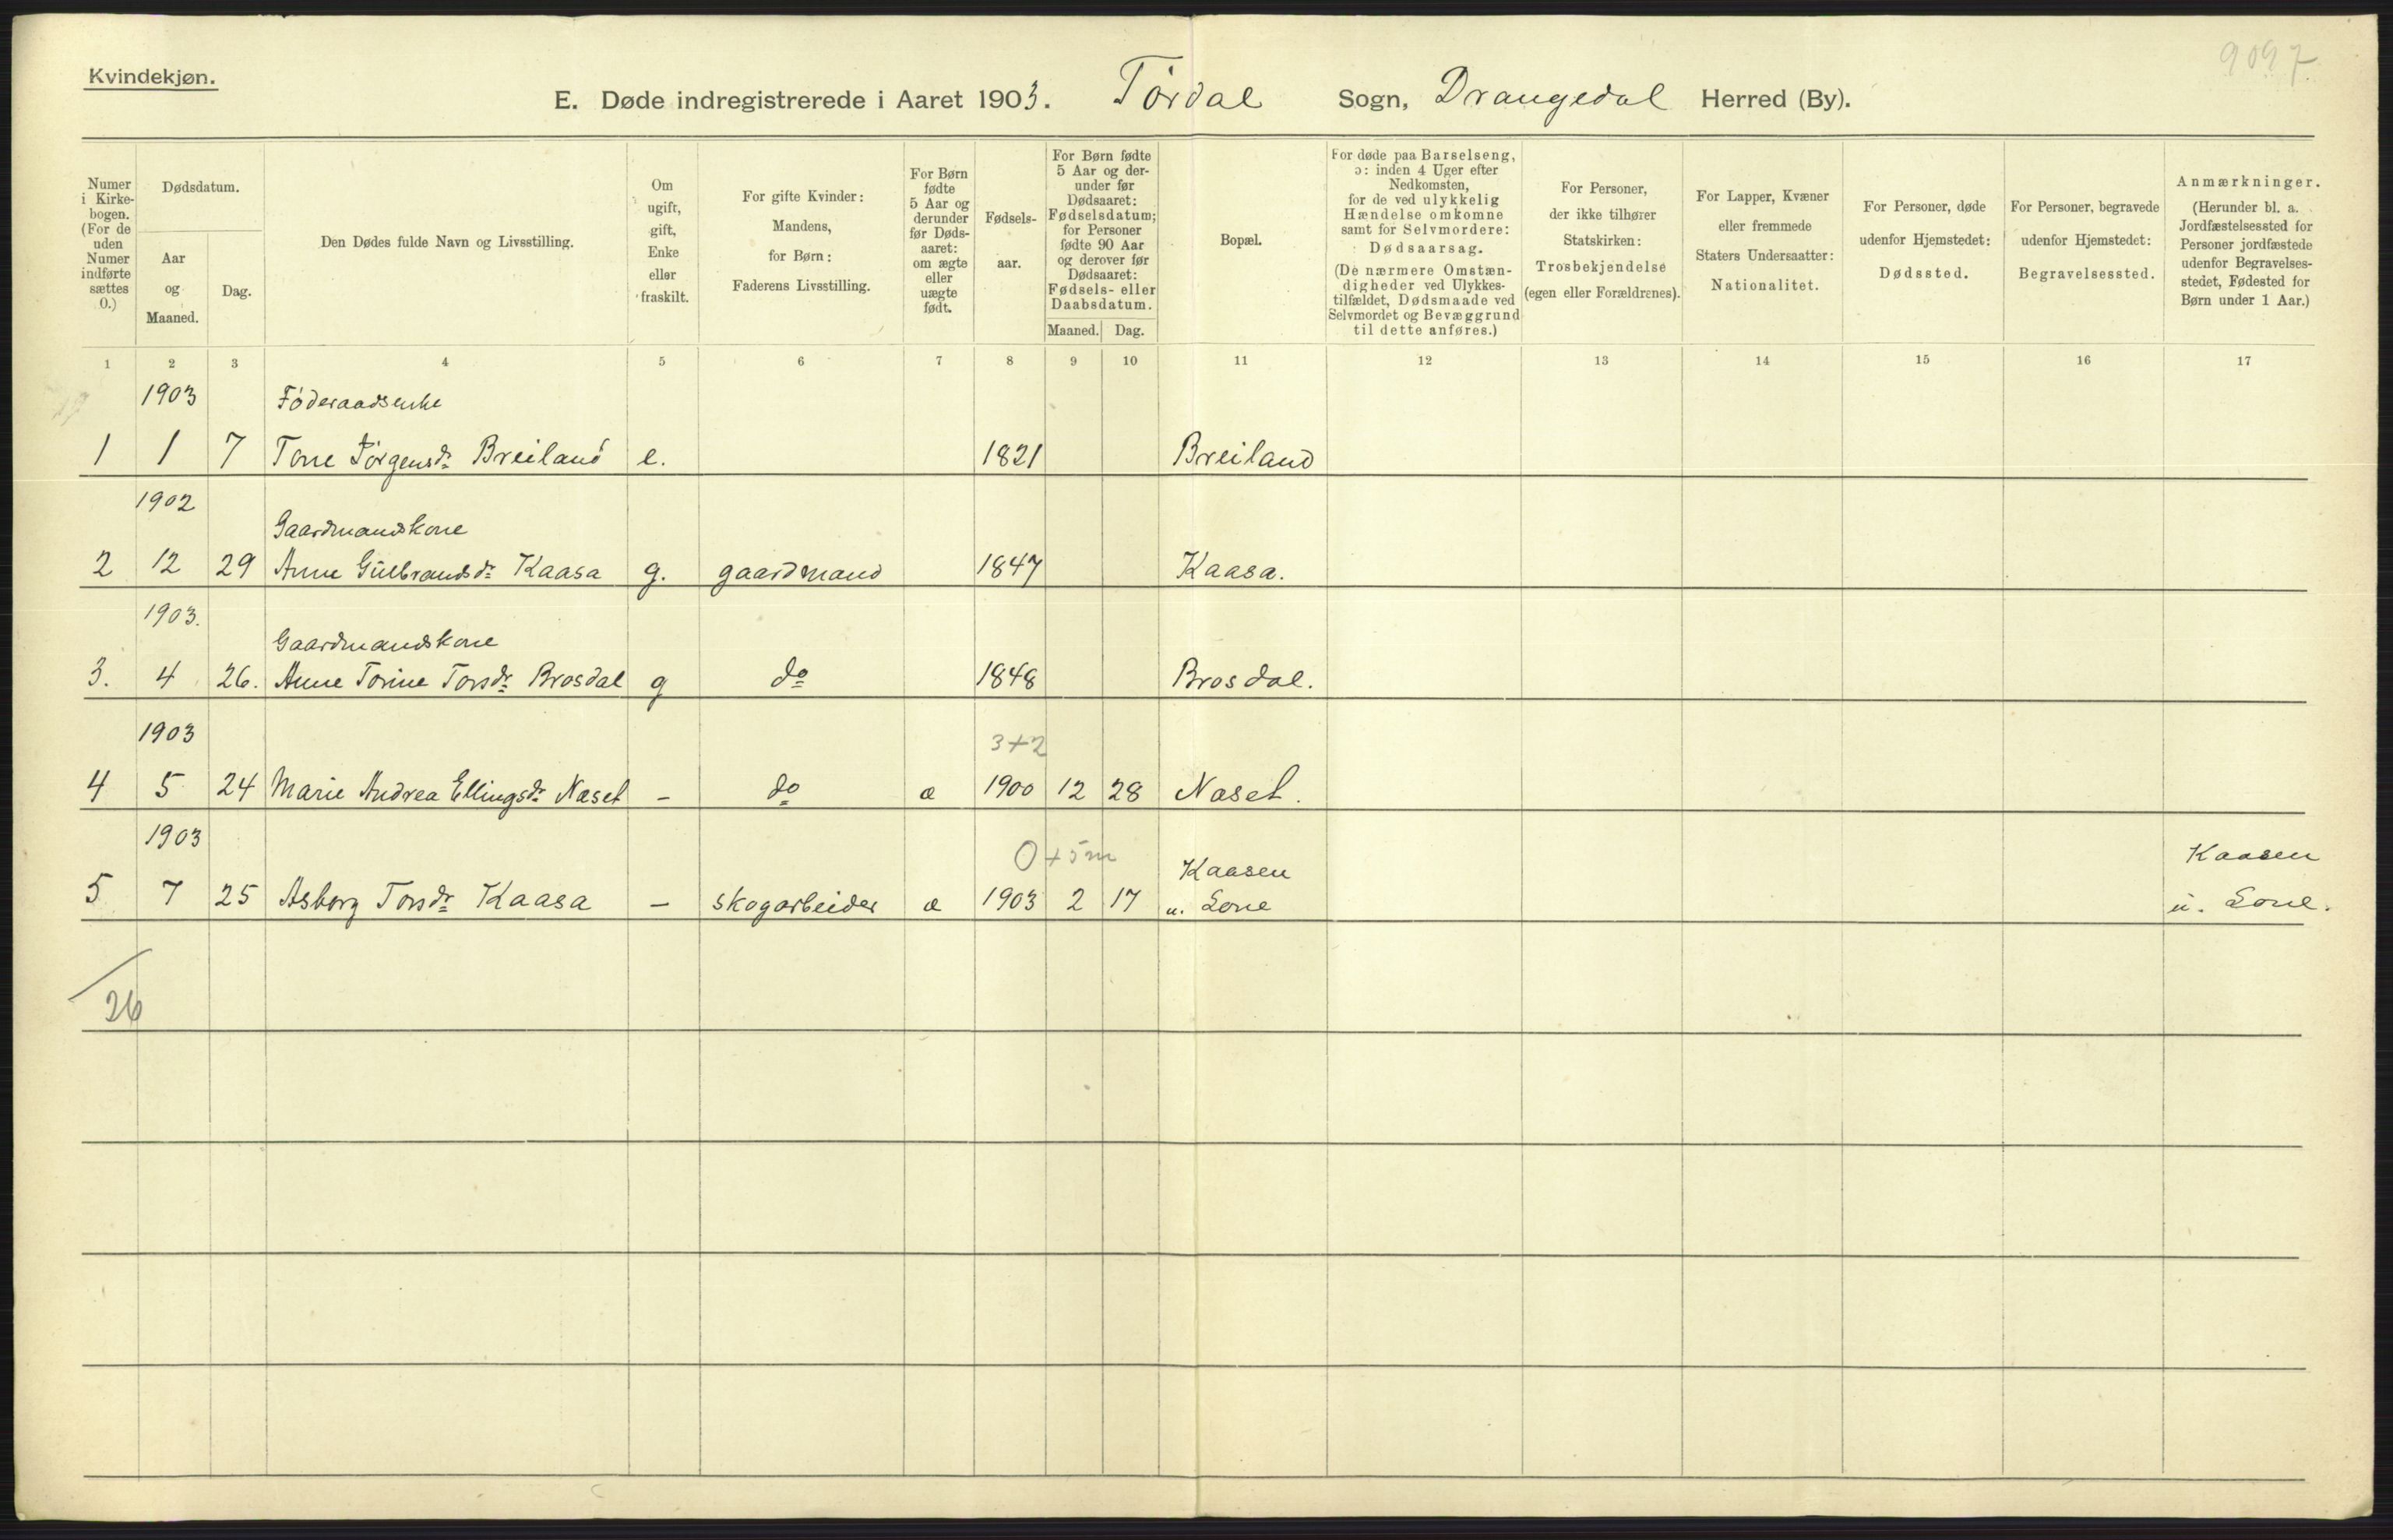 Kvindekjøn.
9097.
E. Døde indregistrerede i Aaret 1903. Tørdal Sogn, Drangedal Herred (By).
Numer i Kirkebogen. (For de uden Numer indførte sættes 0.)
Dødsdatum.
Aar og Maaned.
Dag.
Den Dødes fulde Navn og Livsstilling.
Om ugift, gift, Enke eller fraskilt.
For gifte Kvinder: Mandens, for Børn: Faderens Livsstilling.
For Børn fødte 5 Aar og derunder før Dødsaaret: om ægte eller uægte født.
Fødselsaar.
For Børn fødte 5 Aar og derunder før Dødsaaret: Fødselsdatum; for Personer fødte 90 Aar og derover før Dødsaaret: Fødsels- eller Daabsdatum.
Maaned. Dag.
Bopæl.
For døde paa Barselseng, ɔ: inden 4 Uger efter Nedkomsten, for de ved ulykkelig Hændelse omkomne samt for Selvmordere: Dødsaarsag. (De nærmere Omstændigheder ved Ulykkestilfældet, Dødsmaade ved Selvmordet og Bevæggrund til dette anføres.)
For Personer, der ikke tilhører Statskirken: Trosbekjendelse (egen eller Forældrenes).
For Lapper, Kvæner eller fremmede Staters Undersaatter: Nationalitet.
For Personer, døde udenfor Hjemstedet: Dødssted.
For Personer, begravede udenfor Hjemstedet: Begravelsessted.
Anmærkninger. (Herunder bl. a. Jordfæstelsessted for Personer jordfæstede udenfor Begravelsesstedet, Fødested for Børn under 1 Aar.)
1 2 3 4 5 6 7 8 9 10 11 12 13 14 15 16 17
1903 Føderaadsenke
1 1 7 Tone Jørgensdr Breiland e. 1821 Breiland
1902
Gaardmandskone
2 12 29 Anne Gulbrandsdr Kaasa g. gaardmand 1847 Kaasa.
1903.
Gaardmandskone
3. 4 26. Anne Torine Torsdr Brosdal g do 1848 Brosdal.
1903 3+2
4 5 24 Marie Andrea Ellingsdr Næset – do æ 1900 12 28 Næset.
1903 0+5m Kaasen Kaasen
5 7 25 Asborg Torsdr Kaasa – skogarbeider æ 1903 2 17 u. Lone u. Lone.
26